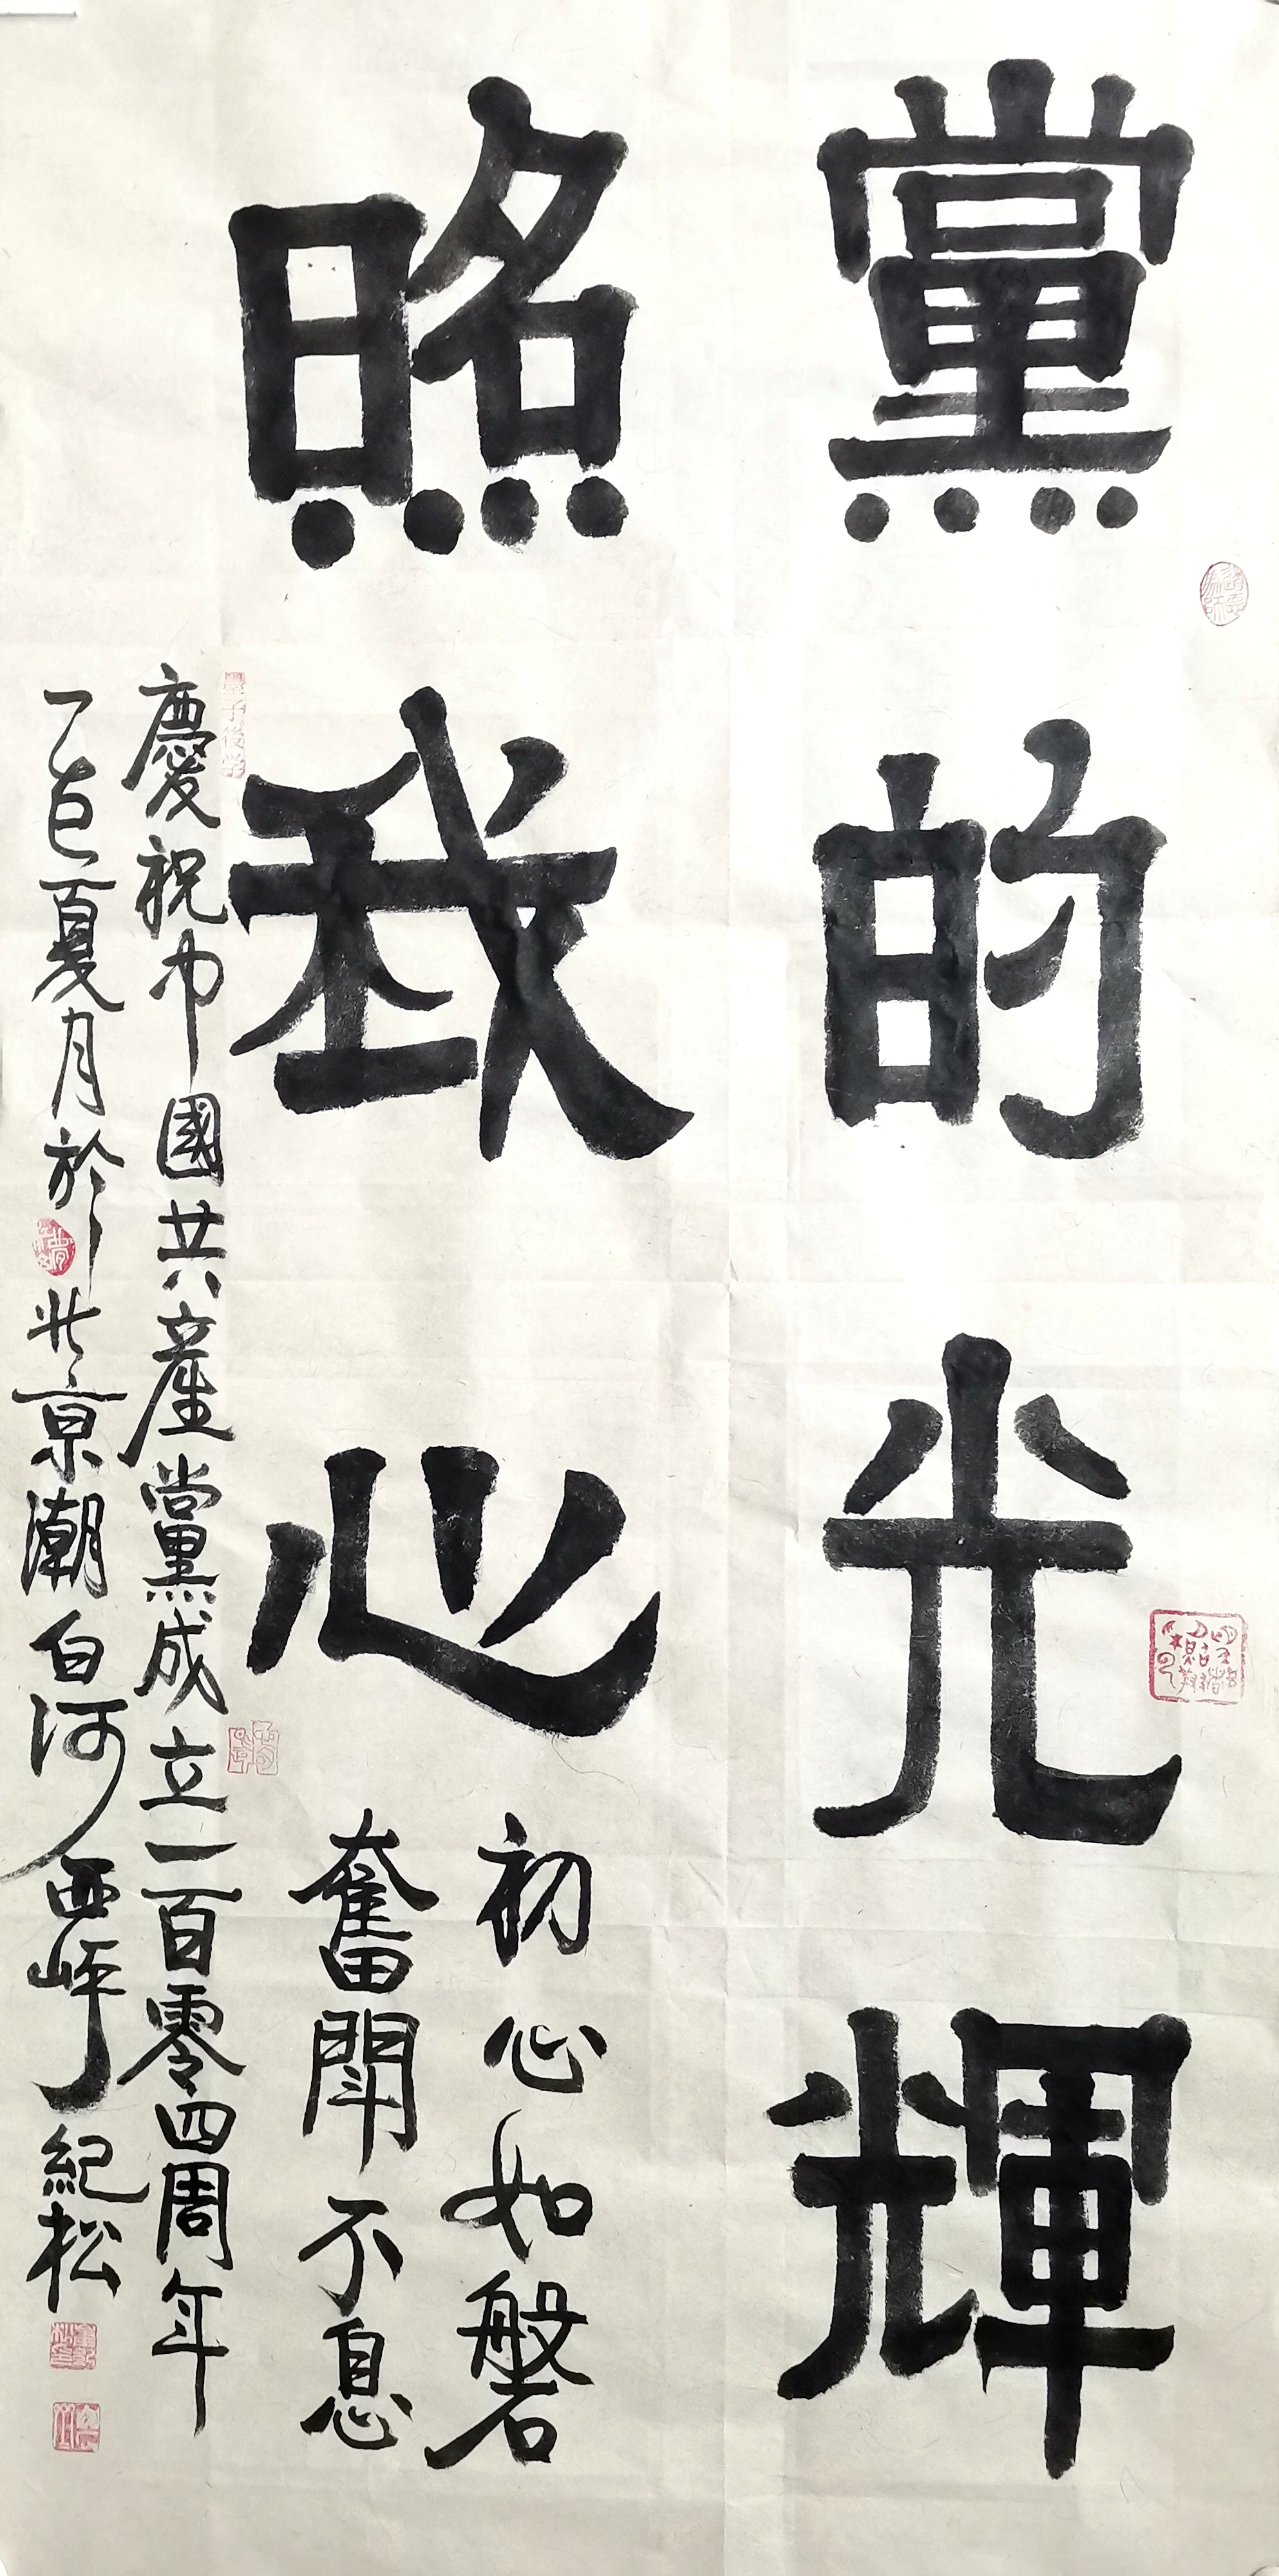 黨的光輝
照我心
初心如磐
奮鬥不息
慶祝中國共產黨成立一百零四周年
乙巳夏月於北京潮白河西岸紀松